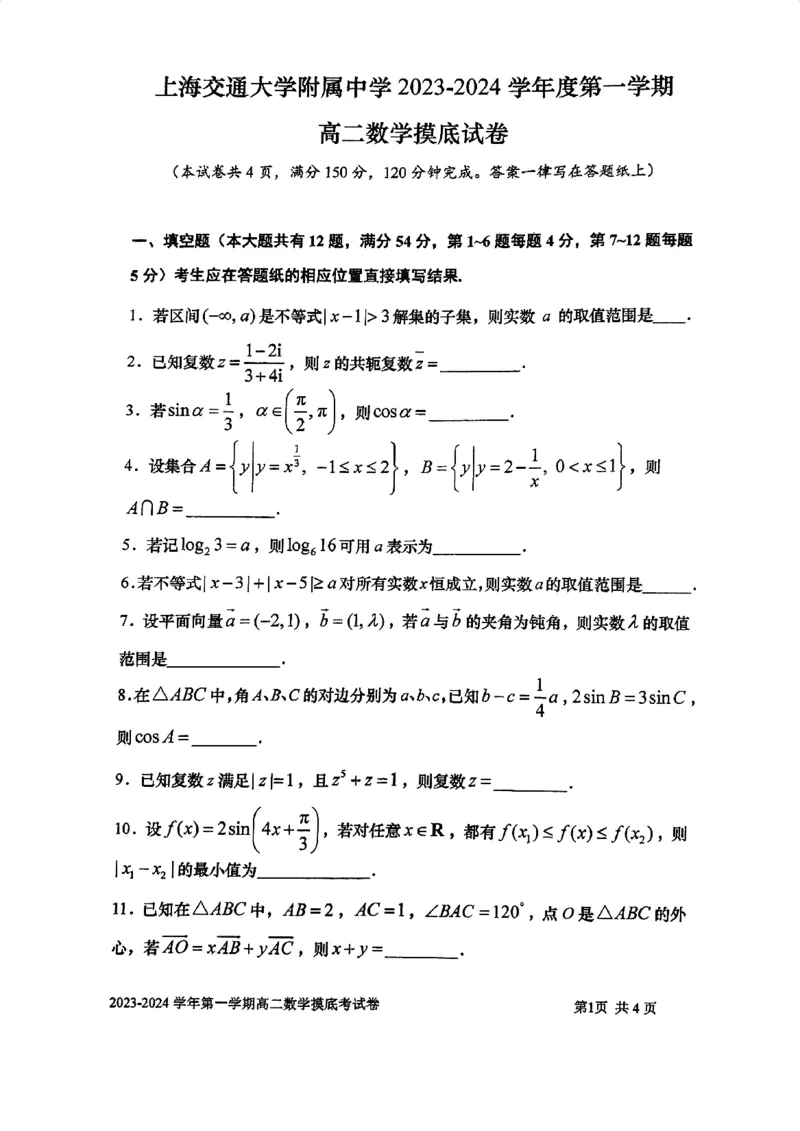 上海交通大学附属中学 2023-2024 学年度第一学期
高二数学摸底试卷
（本试卷共 4 页，满分 150 分，120 分钟完成。答案一律写在答题纸上）
一、填空题（本大题共有 12 题，满分 54 分，第 1~6 题每题 4 分，第 7~12 题每题
5 分）考生应在答题纸的相应位置直接填写结果.
1．若区间(-∞, a)是不等式|x-1|>3解集的子集，则实数 a 的取值范围是____．
2．已知复数z=\frac{1-2i}{3+4i}，则z的共轭复数\overline{z}=________．
3．若sinα=\frac{1}{3}，α∈(\frac{π}{2},π)，则cosα=________．
4．设集合A={y|y=x^{\frac{1}{3}}, -1≤x≤2}，B={y|y=2-\frac{1}{x}, 0<x≤1}，则
A∩B=_________．
5．若记log₂3=a，则log₆16可用a表示为_________．
6.若不等式|x-3|+|x-5|≥a对所有实数x恒成立,则实数a的取值范围是_____．
7．设平面向量\vec{a}=(-2,1)，\vec{b}=(1,λ)，若\vec{a}与\vec{b}的夹角为钝角，则实数λ的取值
范围是____________．
8.在△ABC中,角A、B、C的对边分别为a、b、c,已知b-c=\frac{1}{4}a,2sinB=3sinC，
则cosA=_______．
9．已知复数z满足|z|=1，且z⁵+z=1，则复数z=________．
10．设f(x)=2sin(4x+\frac{π}{3})，若对任意x∈R，都有f(x₁)≤f(x)≤f(x₂)，则
|x₁-x₂|的最小值为____________．
11．已知在△ABC中，AB=2，AC=1，∠BAC=120°，点O是△ABC的外
心，若\overline{AO}=x\overline{AB}+y\overline{AC}，则x+y=________．
2023-2024 学年第一学期高二数学摸底考试卷
第1页 共 4 页